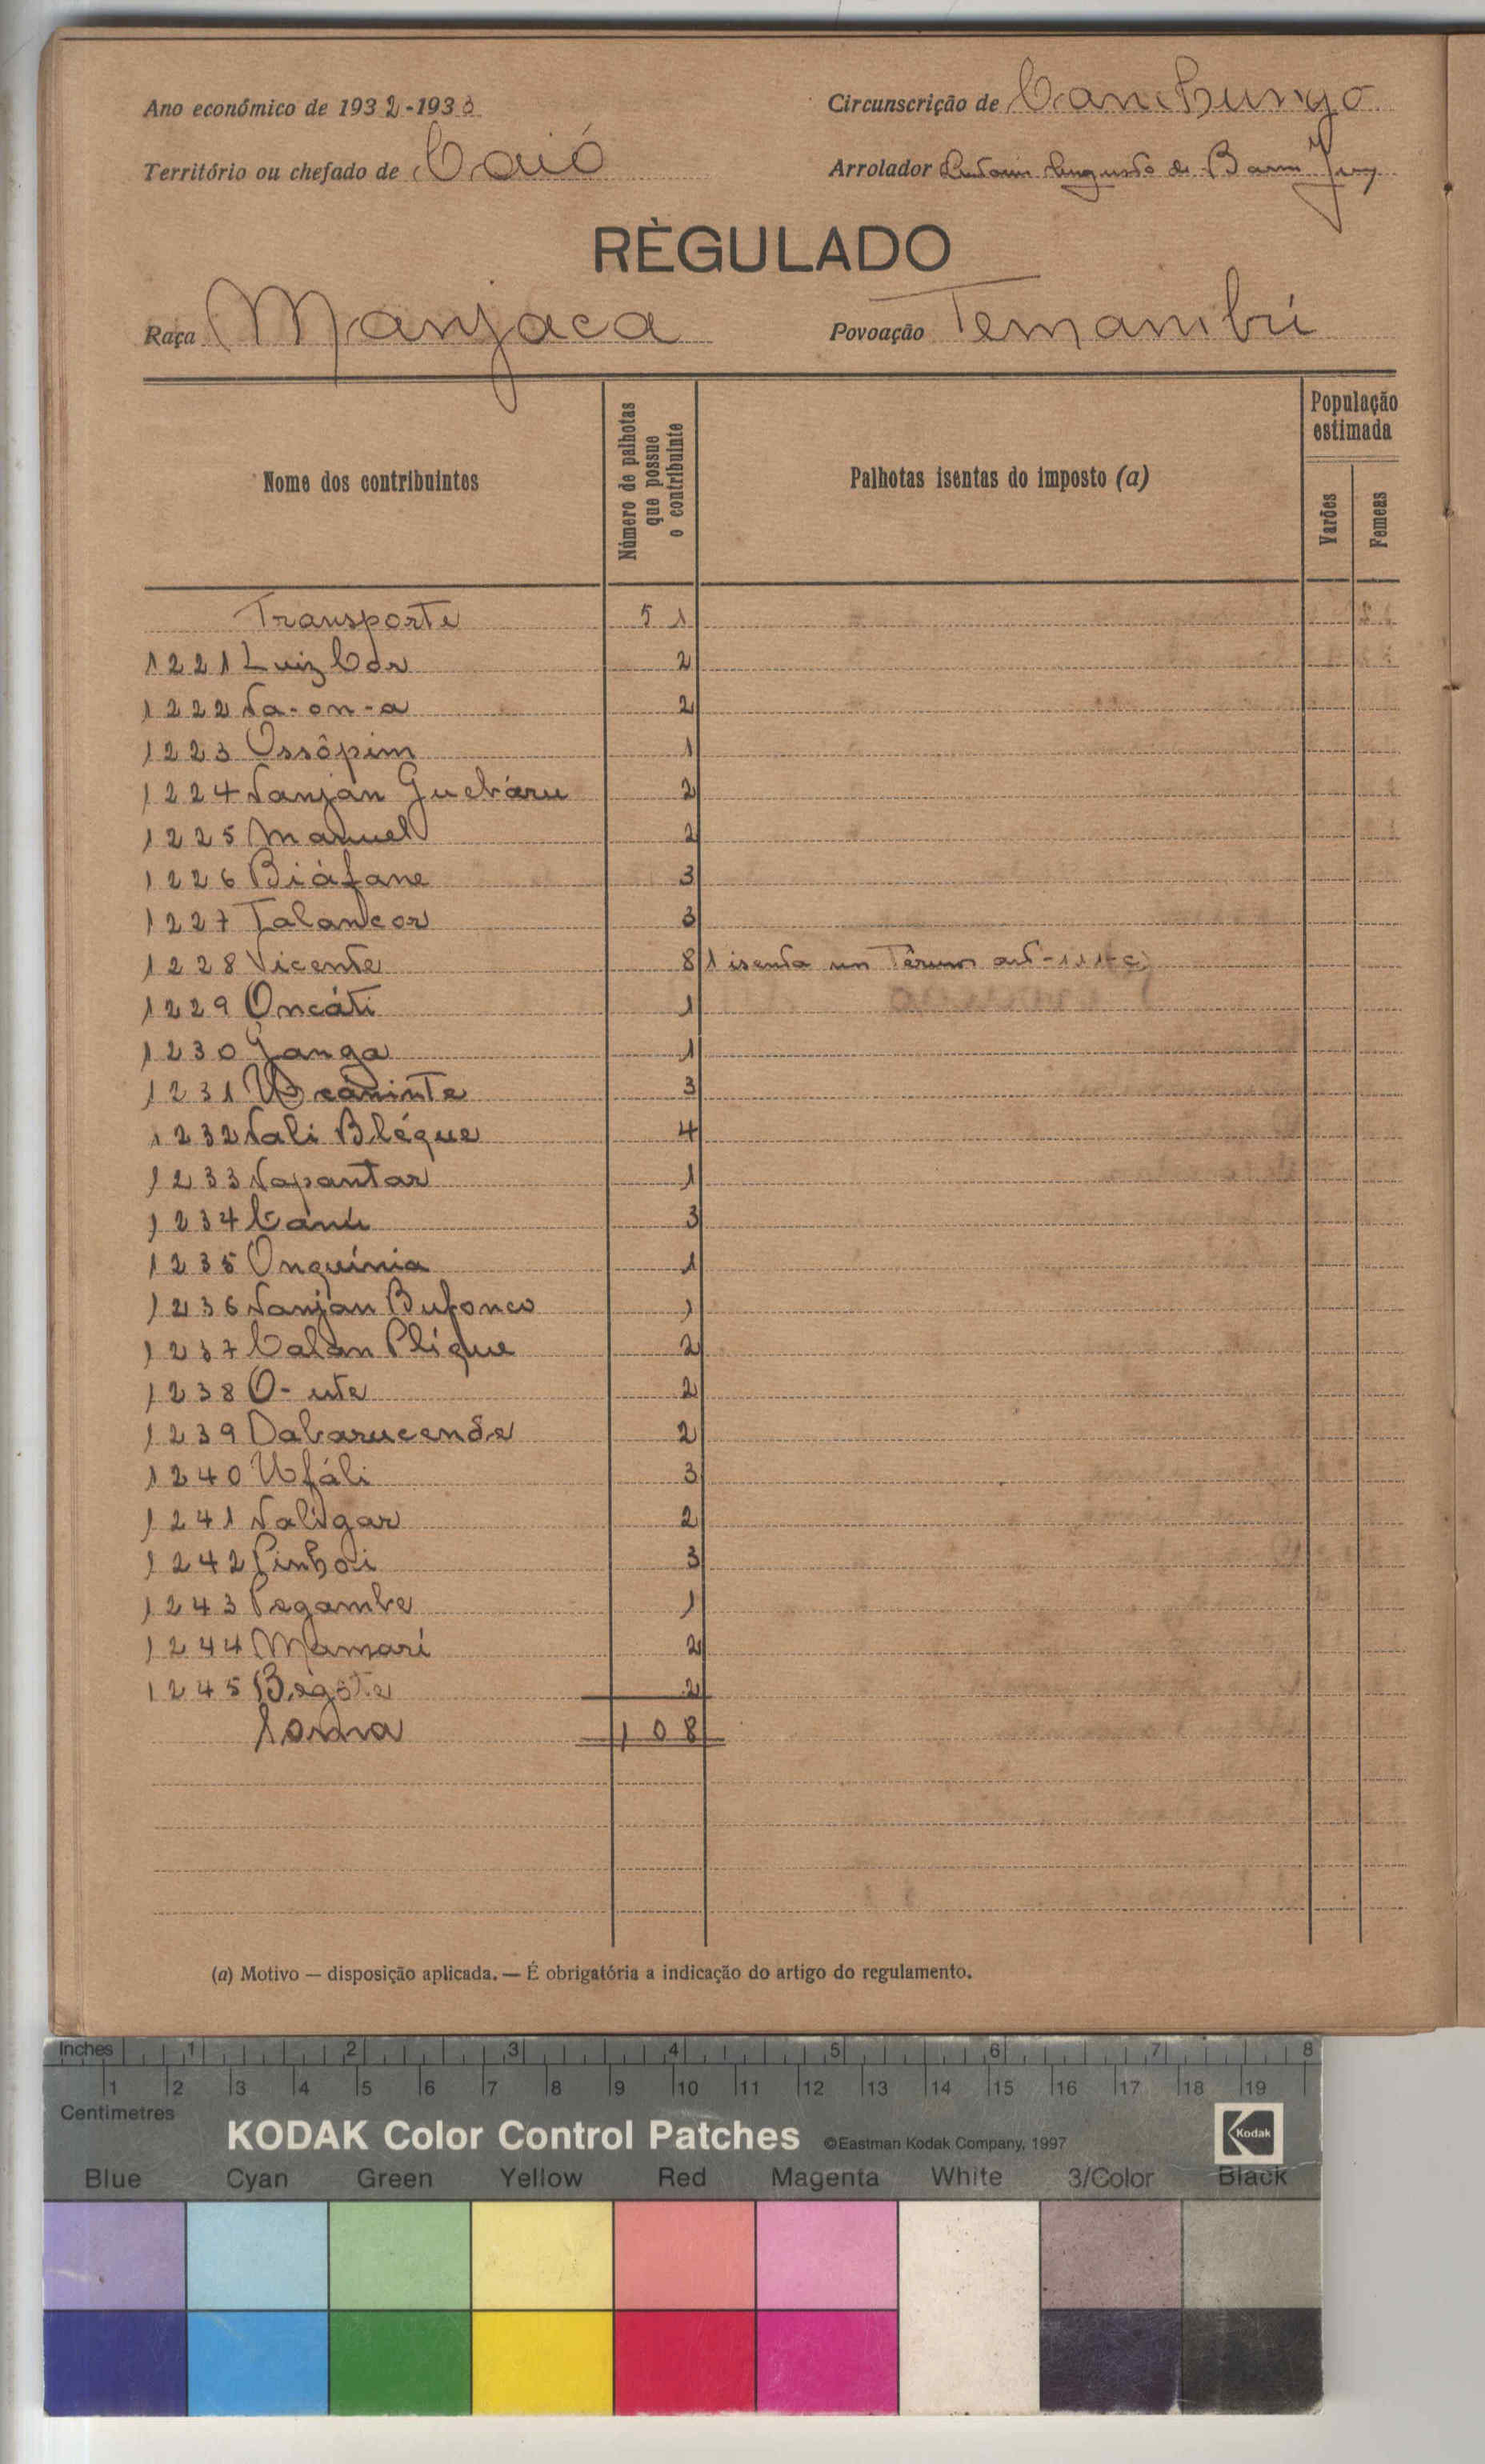 Ano económico de 1932-1933
Circunscrição de Canchungo
Território ou chefado de Caió
Arrolador Augusto de
RÈGULADO
Raça Manjaca
Povoação Temambú
Nome dos contribuintes
Número de palhotas que possue o contribuinte
Palhotas isentas do imposto (a)
População estimada
Varões
Femeas
Transporte 51
1221 Luiz Cór 2
1222 Na-on-a 2
1223 Ossôpim 1
1224 Nanján Guebáru 2
1225 Manuel 2
1226 Biáfane 3
1227 Talancor 3
1228 Vicente 8 1 isenta un Têrmos art-
1229 Oncáti 1
1230 Ganga 1
1231 3
1232 Nali Bléque 4
1233 Napantar 1
1234 3
1235 Onquínia 1
1236 Nanjan Bufonco 1
1237 Calan Plíque 2
1238 O-ute 2
1239 Dabarucende 2
1240 Ufáli 3
1241 Naligar 2
1242 Pinhoi 3
1243 Pegambe 1
1244 Mamarí 2
1245 Begóte 2
Soma 108
(a) Motivo — disposição aplicada. — É obrigatória a indicação do artigo do regulamento.
Inches 1 2 3 4 5 6 7 8
1 2 3 4 5 6 7 8 9 10 11 12 13 14 15 16 17 18 19
Centimetres
KODAK Color Control Patches ©Eastman Kodak Company, 1997 Kodak
Blue Cyan Green Yellow Red Magenta White 3/Color Black